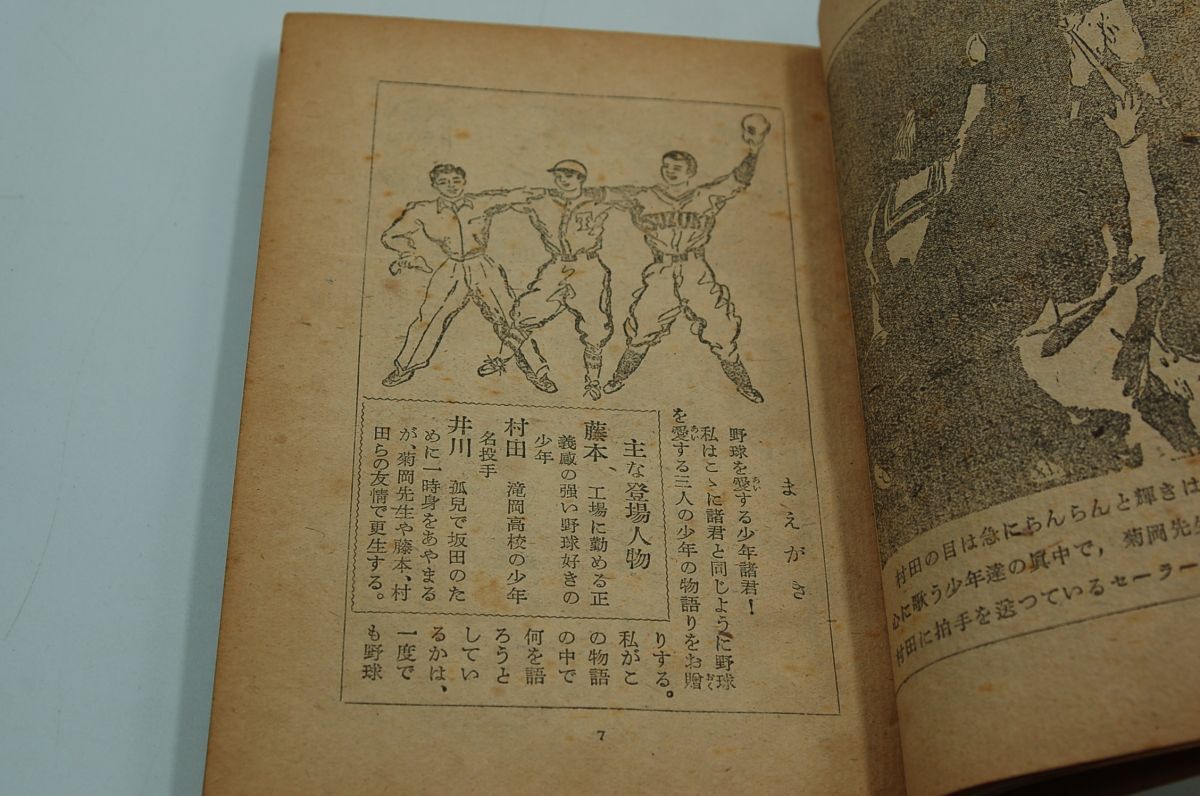 まえがき
野球を愛する少年諸君!
私はこゝに諸君と同じように野球
を愛する三人の少年の物語りをお贈
りする。
私がこ
の物語
の中で
何を語
ろうと
してい
るかは、
一度で
も野球
主な登場人物
藤本、工場に勤める正
義感の强い野球好きの
少年
村田 滝岡高校の少年
名投手
井川 孤兒で坂田のた
めに一時身をあやまる
が、菊岡先生や藤本、村
田らの友情で更生する。
7
村田の目は急にらんらんと輝きは
心に歌う少年達の眞中で,菊岡先
村田に拍手を送つているセーラー